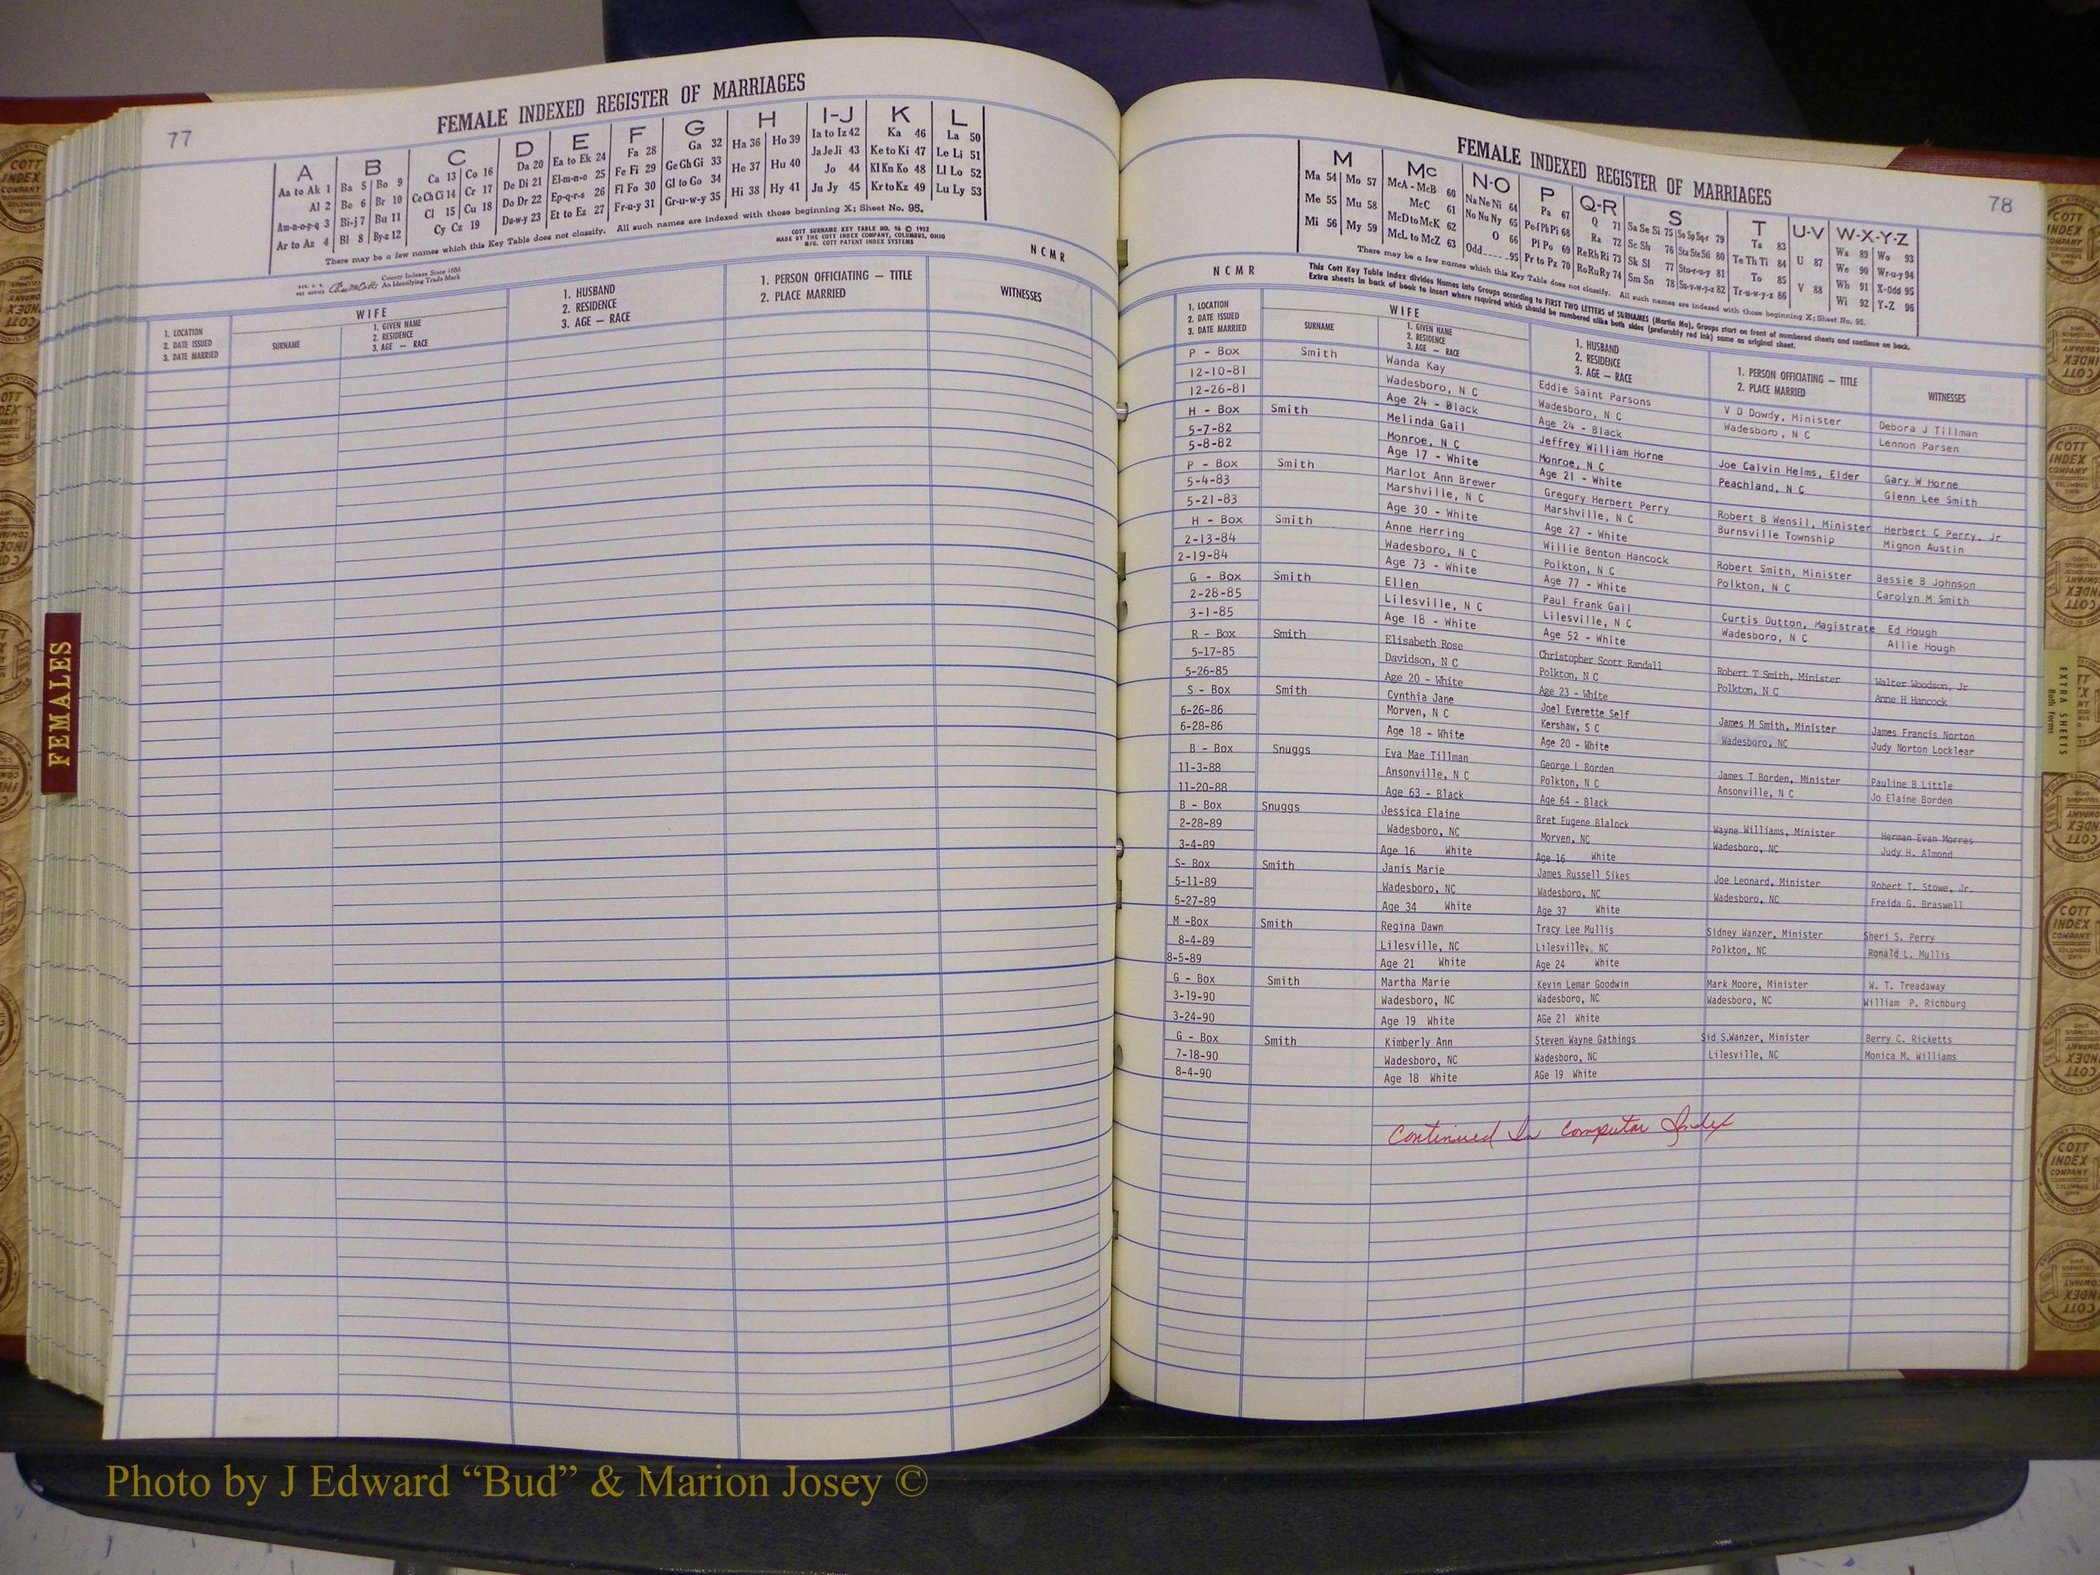 77
FEMALE INDEXED REGISTER OF MARRIAGES
A B C D E F G H I-J K L
Aa to Ak 1 Ba 5 Bo 9 Ca 13 Co 16 Da 20 Ea to Ek 24 Fa 28 Ga 32 Ha 36 Ho 39 Ia to Iz 42 Ka 46 La 50
Al 2 Be 6 Br 10 Ce Ch Ci 14 Cr 17 De Di 21 El-m-n-o 25 Fe Fi 29 Ge Gh Gi 33 He 37 Hu 40 Ja Je Ji 43 Ke to Ki 47 Le Li 51
Am-n-o-p-q 3 Bi-j 7 Bu 11 Cl 15 Cu 18 Do Dr 22 Ep-q-r-s 26 Fl Fo 30 Gl to Go 34 Hi 38 Hy 41 Jo 44 Kl Kn Ko 48 Ll Lo 52
Ar to Az 4 Bl 8 By-z 12 Cy Cz 19 Du-w-y 23 Et to Ez 27 Fr-u-y 31 Gr-u-w-y 35 Ju Jy 45 Kr to Kz 49 Lu Ly 53
There may be a few names which this Key Table does not classify. All such names are indexed with those beginning X; Sheet No. 95.
COTT SURNAME KEY TABLE NO. 96 © 1952
MADE BY THE COTT INDEX COMPANY, COLUMBUS, OHIO
MFG. COTT PATENT INDEX SYSTEMS
NCMR
County Indexes Since 1888
An Identifying Trade Mark
1. LOCATION
2. DATE ISSUED
3. DATE MARRIED
WIFE
SURNAME
1. GIVEN NAME
2. RESIDENCE
3. AGE — RACE
1. HUSBAND
2. RESIDENCE
3. AGE — RACE
1. PERSON OFFICIATING — TITLE
2. PLACE MARRIED
WITNESSES
FEMALES
FEMALE INDEXED REGISTER OF MARRIAGES
78
M Mc N-O P Q-R S T U-V W-X-Y-Z
Ma 54 Mo 57 McA - McB 60 Na Ne Ni 64 Pa 67 Q 71 Sa Se Si 75 So Sp Sq-r 79 Ta 83 U 87 Wa 89 Wo 93
Me 55 Mu 58 McC 61 No Nu Ny 65 Pe-f Ph Pi 68 Ra 72 Sc Sh 76 Sta Ste Sti 80 Te Th Ti 84 V 88 We 90 Wr-u-y 94
Mi 56 My 59 McD to McK 62 O 66 Pl Po 69 Re Rh Ri 73 Sk Sl 77 Sto-r-u-y 81 To 85 Wh 91 X-Odd 95
McL to McZ 63 Odd 95 Pr to Pz 70 Ro Ru Ry 74 Sm Sn 78 Su-v-w-y-z 82 Tr-u-w-y-z 86 Wi 92 Y-Z 96
There may be a few names which this Key Table does not classify. All such names are indexed with those beginning X; Sheet No. 95.
NCMR
This Cott Key Table Index divides Names into Groups according to FIRST TWO LETTERS of SURNAMES (Martin Ma). Groups start on front of numbered sheets and continue on back.
Extra sheets in back of book to insert where required which should be numbered alike both sides (preferably red ink) same as original sheet.
1. LOCATION
2. DATE ISSUED
3. DATE MARRIED
WIFE
SURNAME
1. GIVEN NAME
2. RESIDENCE
3. AGE — RACE
1. HUSBAND
2. RESIDENCE
3. AGE — RACE
1. PERSON OFFICIATING — TITLE
2. PLACE MARRIED
WITNESSES
P - Box Smith Wanda Kay Eddie Saint Parsons V D Dowdy, Minister Debora J Tillman
12-10-81 Wadesboro, N C Wadesboro, N C Wadesboro, N C Lennon Parsen
12-26-81 Age 24 - Black Age 24 - Black
H - Box Smith Melinda Gail Jeffrey William Horne Joe Calvin Helms, Elder Gary W Horne
5-7-82 Monroe, N C Monroe, N C Peachland, N C Glenn Lee Smith
5-8-82 Age 17 - White Age 21 - White
P - Box Smith Marlot Ann Brewer Gregory Herbert Perry Robert B Wensil, Minister Herbert C Perry, Jr
5-4-83 Marshville, N C Marshville, N C Burnsville Township Mignon Austin
5-21-83 Age 30 - White Age 27 - White
H - Box Smith Anne Herring Willie Benton Hancock Robert Smith, Minister Bessie B Johnson
2-13-84 Wadesboro, N C Polkton, N C Polkton, N C Carolyn M Smith
2-19-84 Age 73 - White Age 77 - White
G - Box Smith Ellen Paul Frank Gall Curtis Dutton, Magistrate Ed Hough
2-28-85 Lilesville, N C Lilesville, N C Wadesboro, N C Allie Hough
3-1-85 Age 18 - White Age 52 - White
R - Box Smith Elisabeth Rose Christopher Scott Randall Robert T Smith, Minister Walter Woodson, Jr
5-17-85 Davidson, N C Polkton, N C Polkton, N C Anne H Hancock
5-26-85 Age 20 - White Age 23 - White
S - Box Smith Cynthia Jane Joel Everette Self James M Smith, Minister James Francis Norton
6-26-86 Morven, N C Kershaw, S C Wadesboro, NC Judy Norton Locklear
6-28-86 Age 18 - White Age 20 - White
B - Box Snuggs Eva Mae Tillman George L Borden James T Borden, Minister Pauline B Little
11-3-88 Ansonville, N C Polkton, N C Ansonville, N C Jo Elaine Borden
11-20-88 Age 63 - Black Age 64 - Black
B - Box Snuggs Jessica Elaine Bret Eugene Blalock Wayne Williams, Minister Herman Evan Morres
2-28-89 Wadesboro, NC Morven, NC Wadesboro, NC Judy H. Almond
3-4-89 Age 16 White Age 16 White
S- Box Smith Janis Marie James Russell Sikes Joe Leonard, Minister Robert T. Stowe, Jr.
5-11-89 Wadesboro, NC Wadesboro, NC Wadesboro, NC Freida G. Braswell
5-27-89 Age 34 White Age 37 White
M -Box Smith Regina Dawn Tracy Lee Mullis Sidney Wanzer, Minister Sheri S. Perry
8-4-89 Lilesville, NC Lilesville, NC Polkton, NC Ronald L. Mullis
8-5-89 Age 21 White Age 24 White
G - Box Smith Martha Marie Kevin Lemar Goodwin Mark Moore, Minister W. T. Treadaway
3-19-90 Wadesboro, NC Wadesboro, NC Wadesboro, NC William P. Richburg
3-24-90 Age 19 White AGe 21 White
G - Box Smith Kimberly Ann Steven Wayne Gathings Sid S.Wanzer, Minister Berry C. Ricketts
7-18-90 Wadesboro, NC Wadesboro, NC Lilesville, NC Monica M. Williams
8-4-90 Age 18 White AGe 19 White
Continued In Computer Index
EXTRA SHEETS
Both Forms
COTT
INDEX
COMPANY
COLUMBUS
OHIO
Photo by J Edward “Bud” & Marion Josey ©